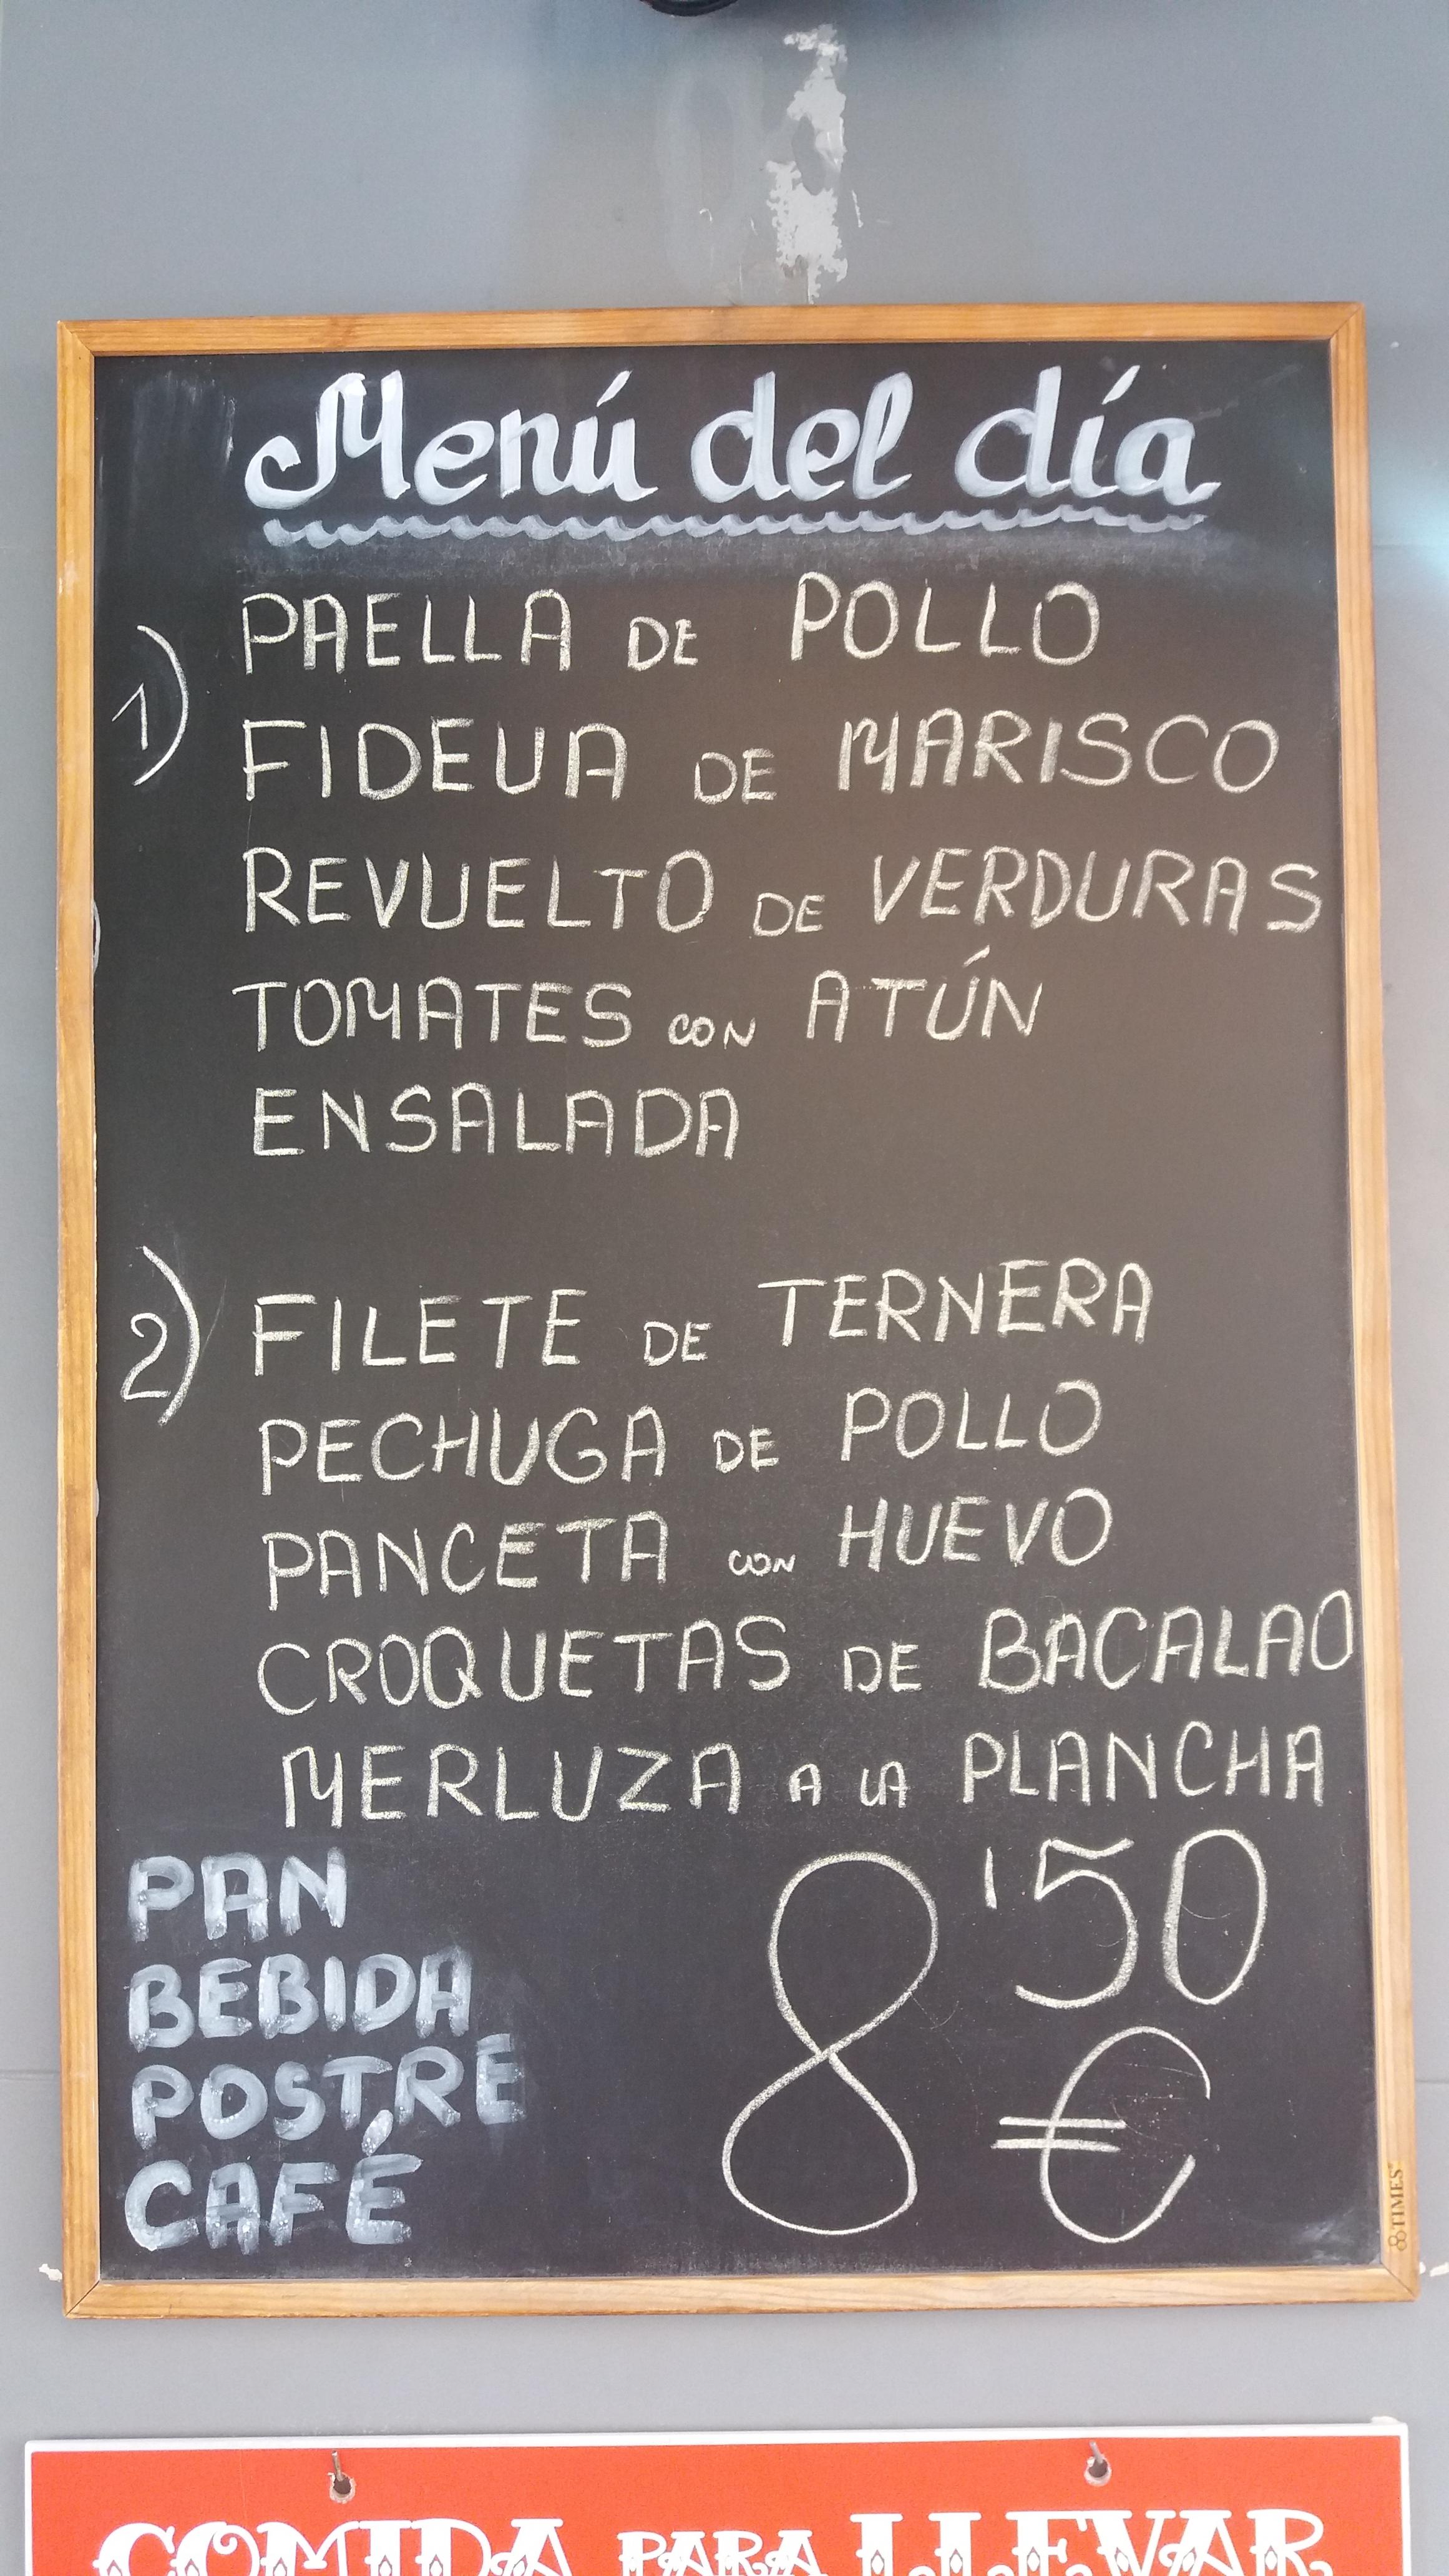 Menú del día
1) PAELLA DE POLLO
FIDEUA DE MARISCO
REVUELTO DE VERDURAS
TOMATES CON ATÚN
ENSALADA
2) FILETE DE TERNERA
PECHUGA DE POLLO
PANCETA CON HUEVO
CROQUETAS DE BACALAO
MERLUZA A LA PLANCHA
PAN
BEBIDA
POSTRE
CAFÉ
8'50
€
TIMES
COMIDA PARA LLEVAR